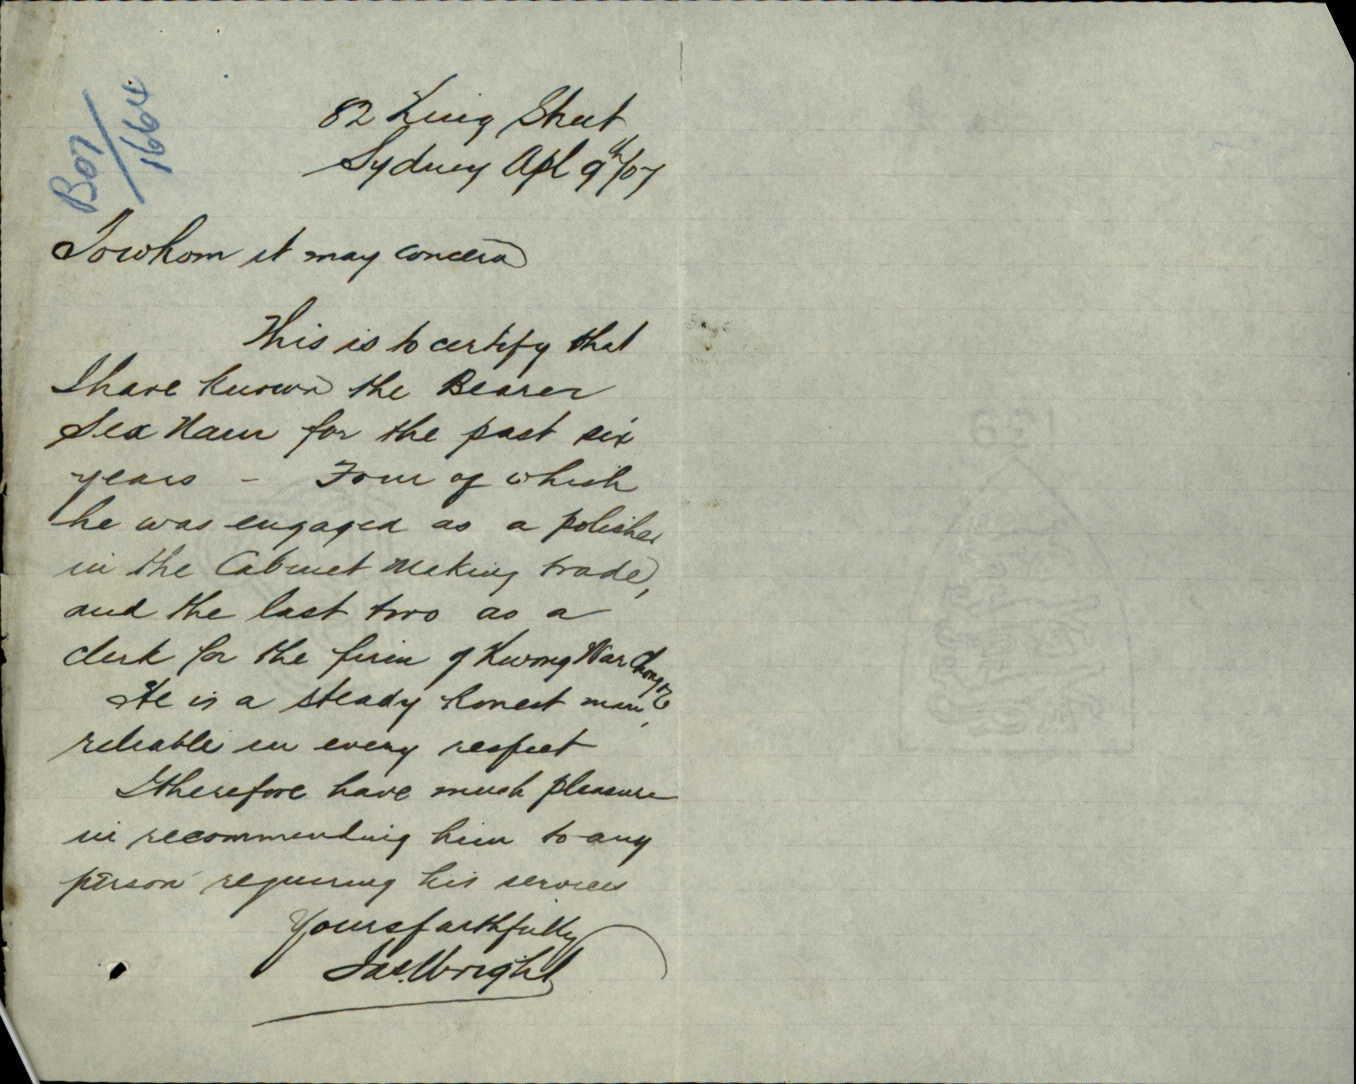 B07/1664
82 King Street
Sydney Apl 9th/07
To whom it may concern
This is to certify that
I have known the Bearer
for the past six
years - Four of which
he was engaged as a polisher
in the Cabinet Making trade,
and the last two as a
clerk for the firm of Kwong War Chong & Co
He is a steady honest man,
reliable in every respect
I therefore have much pleasure
in recommending him to any
person requiring his services
Yours faithfully
Jas. Wright